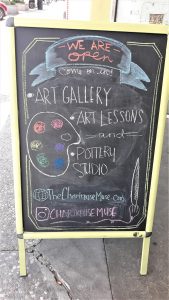 WE ARE
open
Come on in!
• ART GALLERY
• ART LESSONS
and
• POTTERY
STUDIO
TheChartreuseMuse.com
CHARTREUSE MUSE